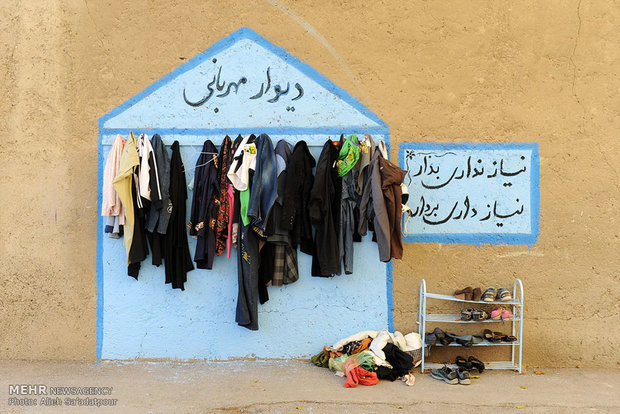 دیوار مهربانی
نیاز نداری بذار
نیاز داری بردار
MEHR NEWSAGENCY
Photo: Alieh Sa'adatpour